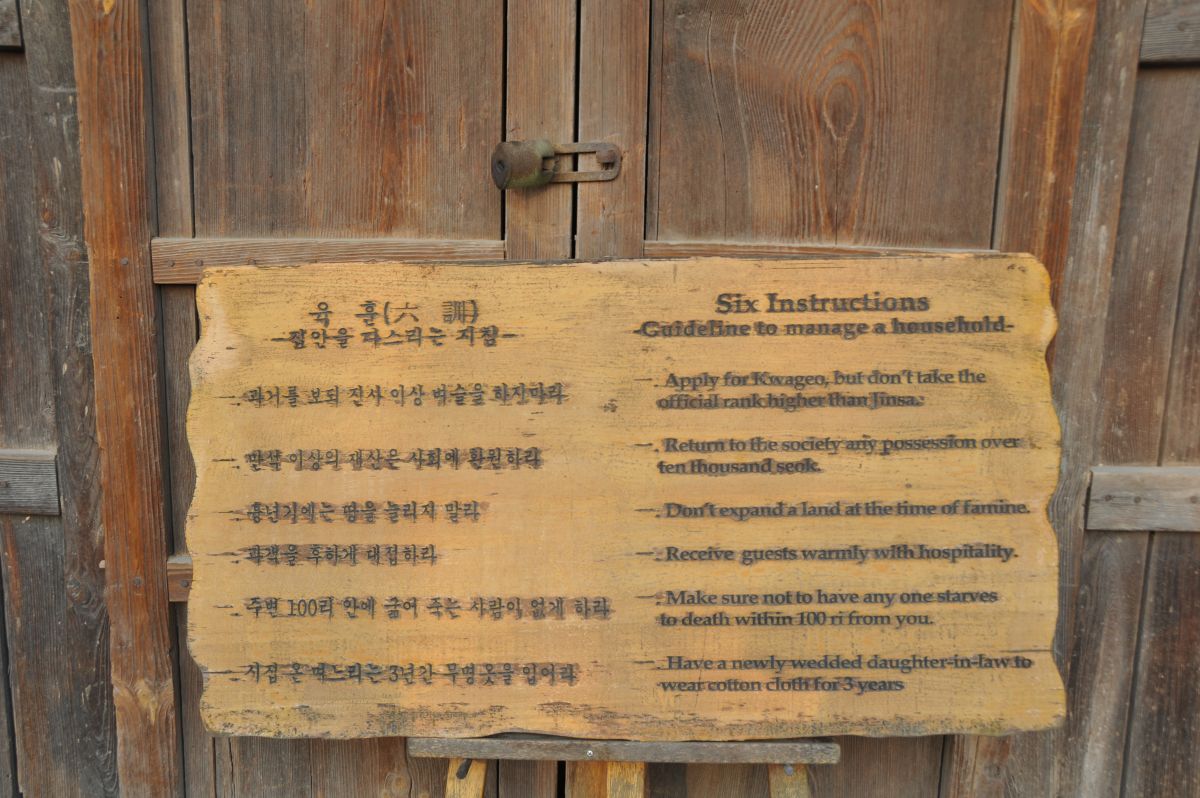 육 훈(六 訓)
-집안을 다스리는 지침-
一. 과거를 보되 진사 이상 벼슬을 하지마라
一. 만석 이상의 재산은 사회에 환원하라
一. 흉년기에는 땅을 늘리지 말라
一. 과객을 후하게 대접하라
一. 주변 100리 안에 굶어 죽는 사람이 없게 하라
一. 시집 온 며느리는 3년간 무명옷을 입어라
Six Instructions
-Guideline to manage a household-
一. Apply for Kwageo, but don't take the
official rank higher than Jinsa.
一. Return to the society any possession over
ten thousand seok.
一. Don't expand a land at the time of famine.
一. Receive guests warmly with hospitality.
一. Make sure not to have any one starves
to death within 100 ri from you.
一. Have a newly wedded daughter-in-law to
wear cotton cloth for 3 years